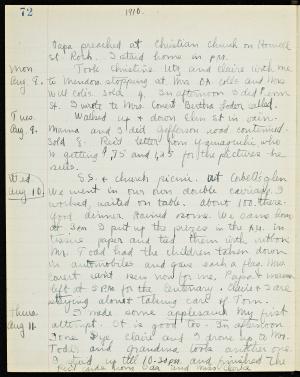 72
1910.
Papa preached at Christian Church on Howell
St. Roch. I staid home in p.m.
Mon Took Christine Utz and Claire with me
Aug. 8. to Mendon stopping at Mrs Coles and Mrs
Will Coles. Sold 4. In afternoon I did Penn
St. I wrote to Mrs Ernest Bertha Yoder called.
Tues Walked up & down Elm St in vain.
Aug. 9. Mama and I did Jefferson road continued.
Sold 8. Rec'd letter from
is getting $.75 and 1.25 for the pictures he
sells.
Wed S.S. & church picnic. at Cobb's glen
Aug 10. We went in our own double carriage. I
worked, waited on table. about 100 there.
Good dinner. Rained some. We came home
at 3 pm I put up the prizes in the p.m. in
tissue paper and tied them with ribbon
Mr. Todd had the children taken down
in automobiles and gave each a flag. Mrs.
Covert sent new for me, Papa & mama
left at 5 PM for the Centenary. Claire & I are
staying alone taking care of Tom.
Thurs I made some applesauce my first
Aug 11. attempt. It is good too. In afternoon
Irene Dye Claire and I drove up to Mr.
Todd's and Grandma took another one.
I sat up till 10:30 pm and finished The